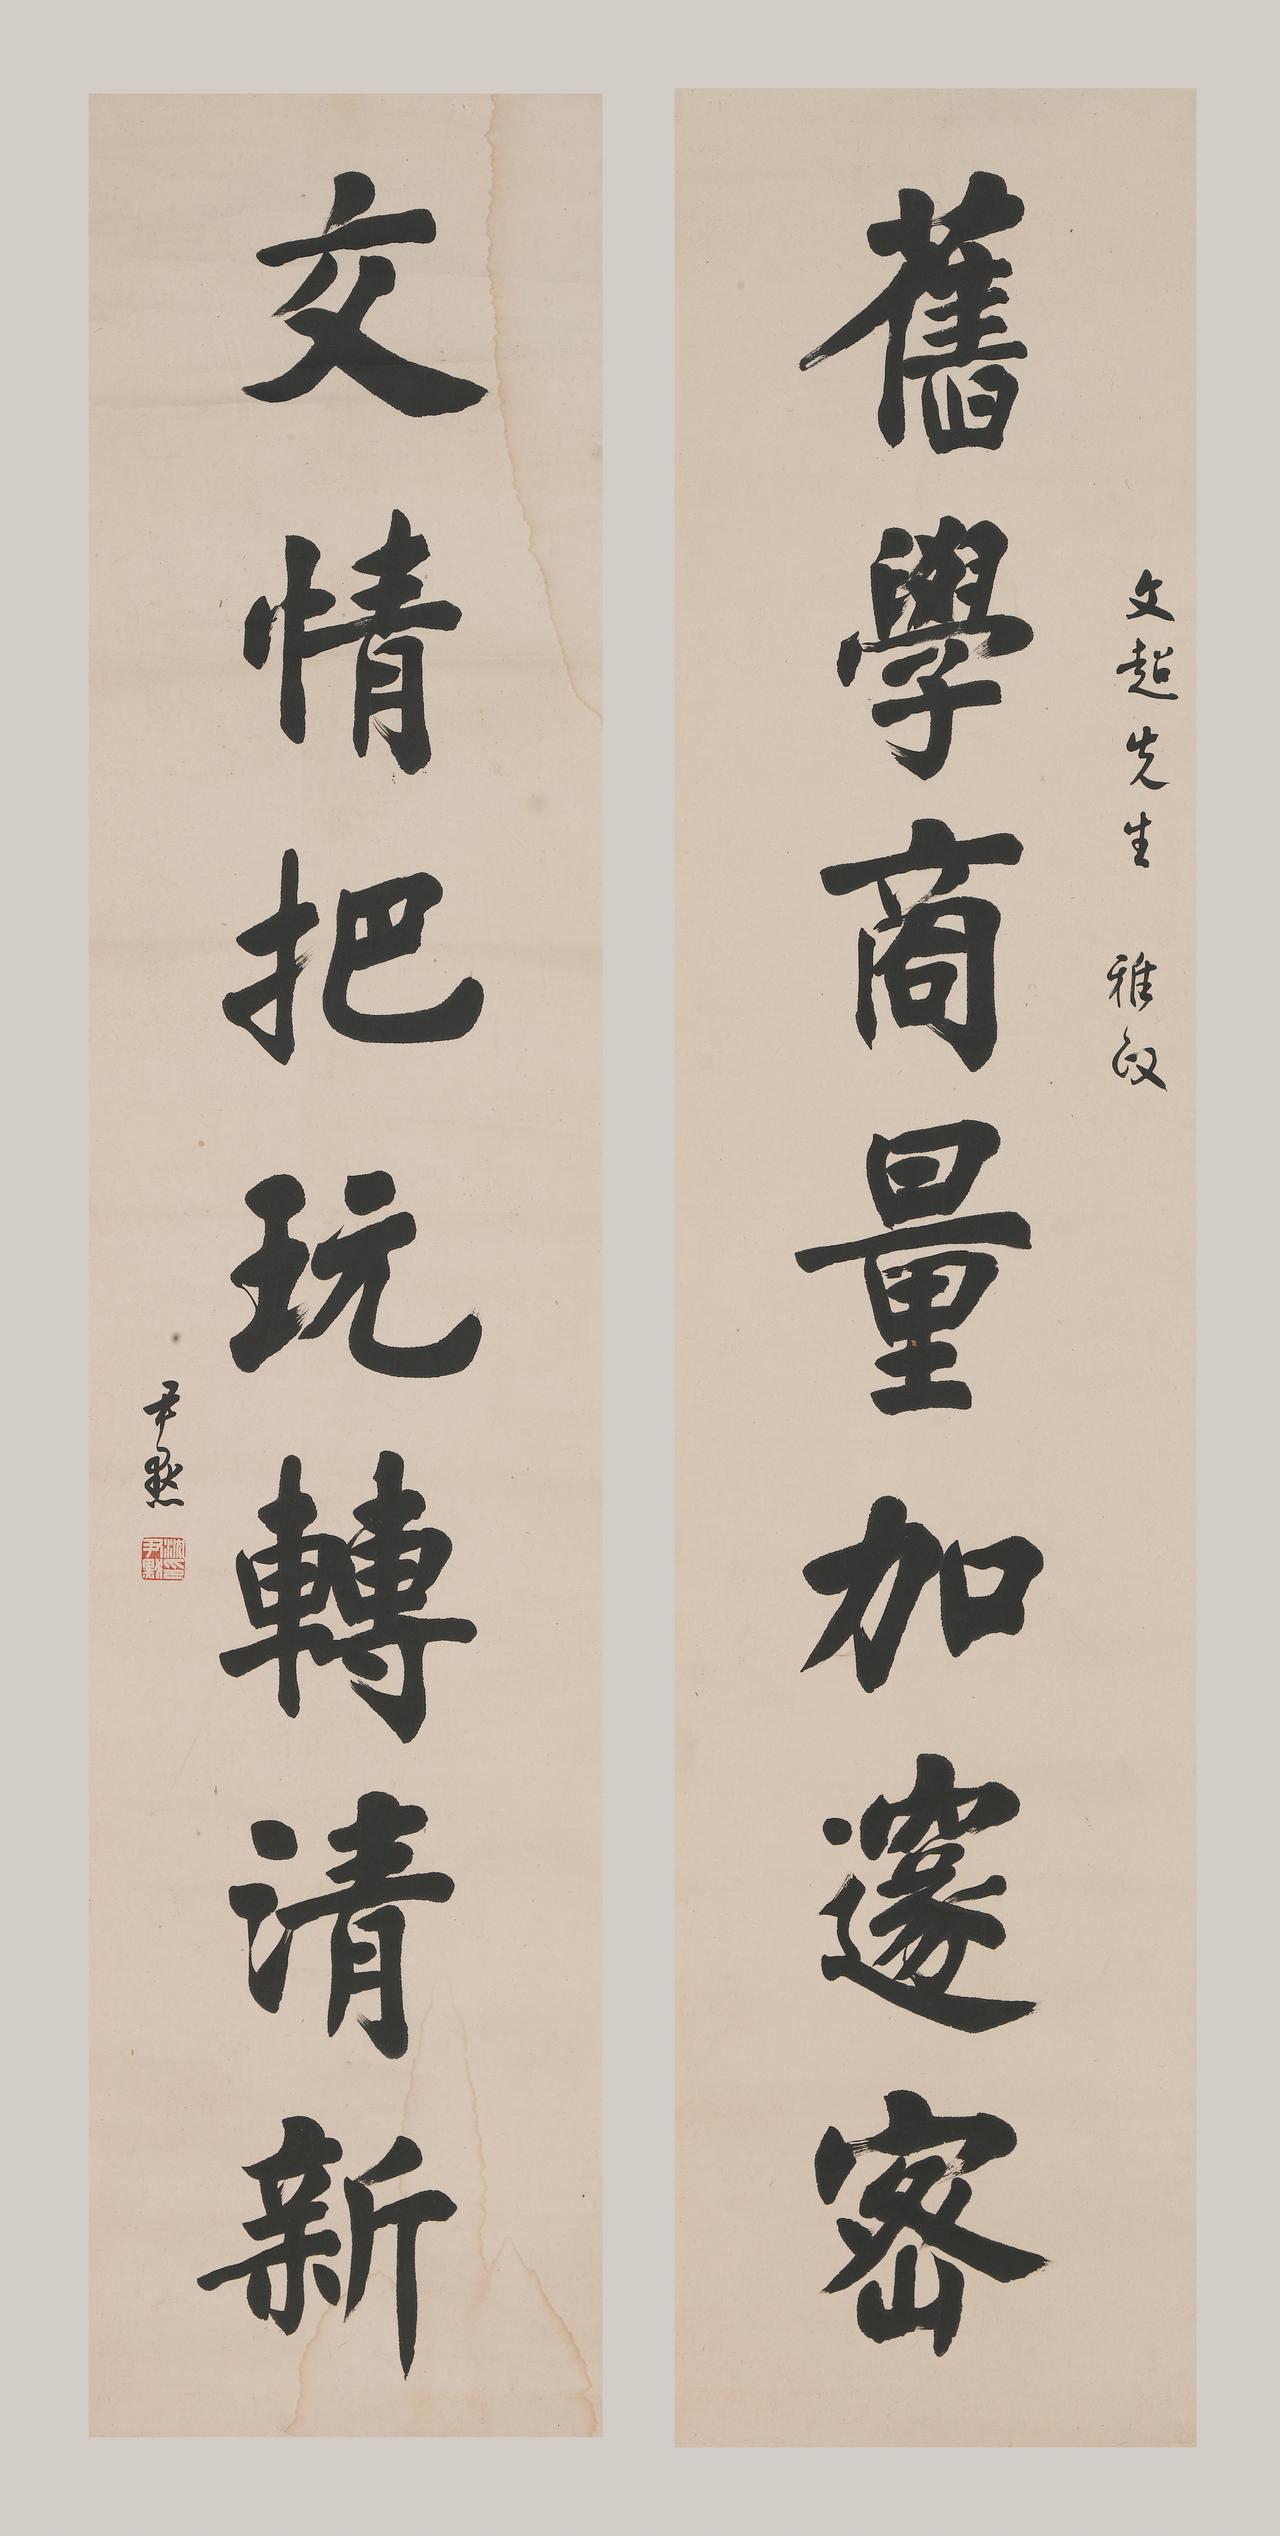 文超先生 雅政
舊學商量加邃密
交情把玩轉清新
尹默
沈尹默印